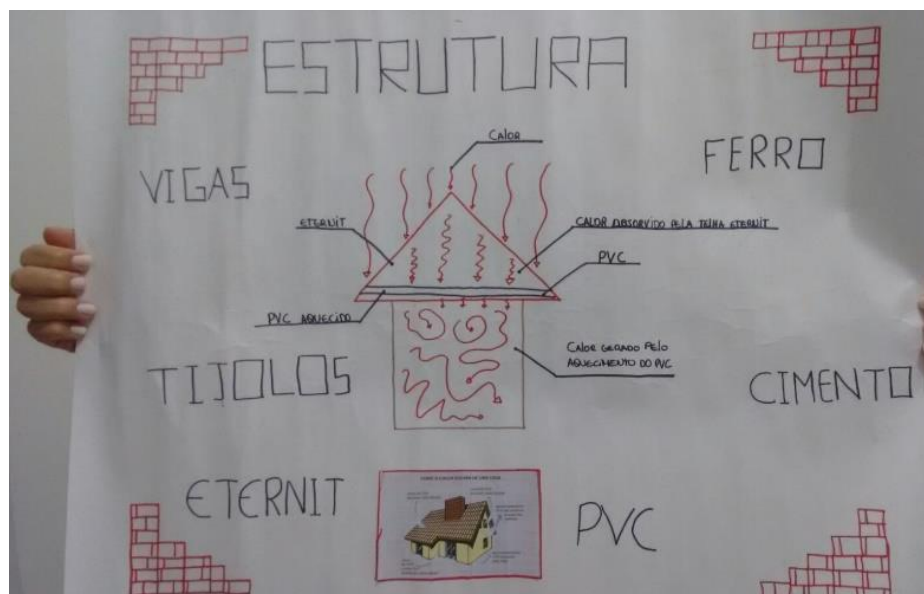 ESTRUTURA
CALOR
FERRO
VIGAS
ETERNIT
CALOR ABSORVIDO PELA TELHA ETERNIT
PVC
PVC AQUECIDO
CALOR GERADO PELO
AQUECIMENTO DO PVC
TIJOLOS
CIMENTO
ETERNIT
PVC